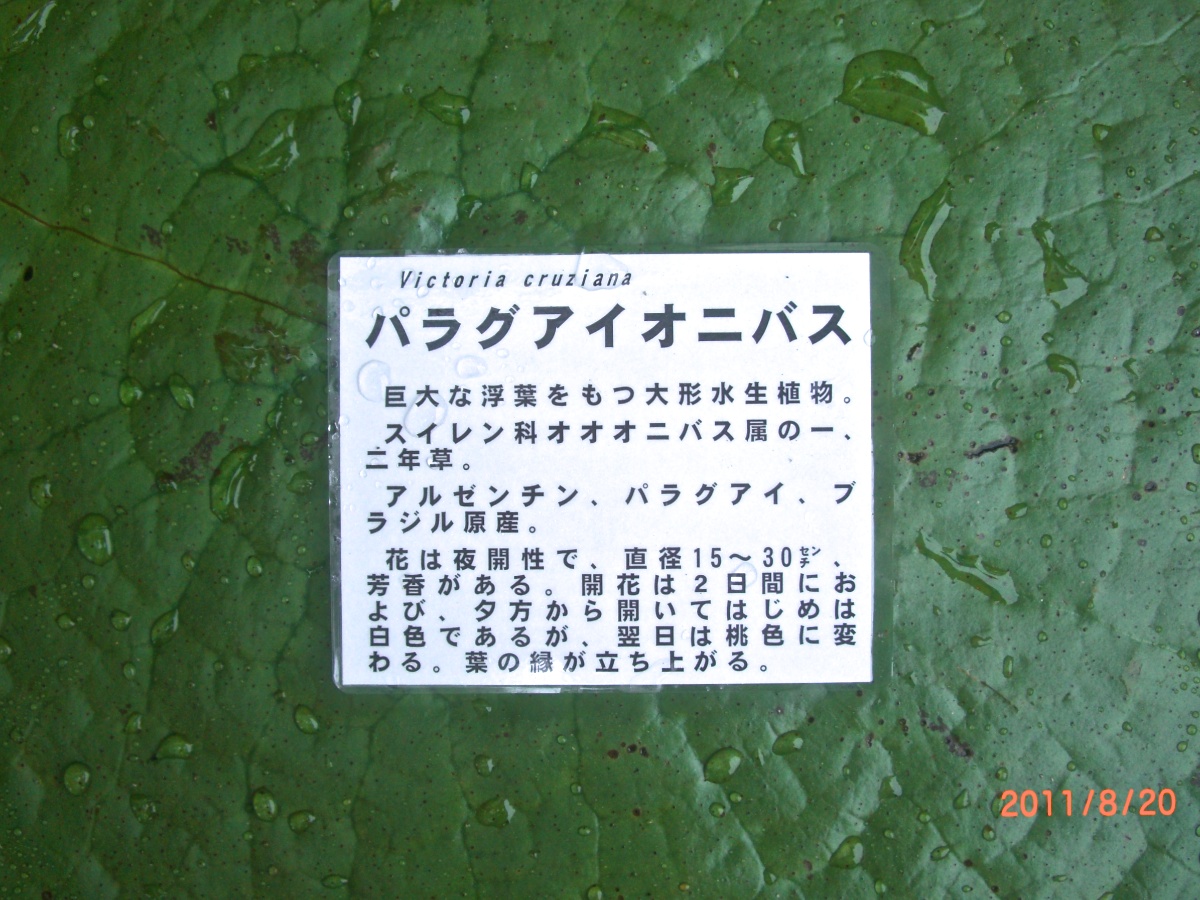 Victoria cruziana
パラグアイオニバス
巨大な浮葉をもつ大形水生植物。
スイレン科オオオニバス属の一、
二年草。
アルゼンチン、パラグアイ、ブ
ラジル原産。
花は夜開性で、直径15～30㌢、
芳香がある。開花は2日間にお
よび、夕方から開いてはじめは
白色であるが、翌日は桃色に変
わる。葉の縁が立ち上がる。
2011/8/20